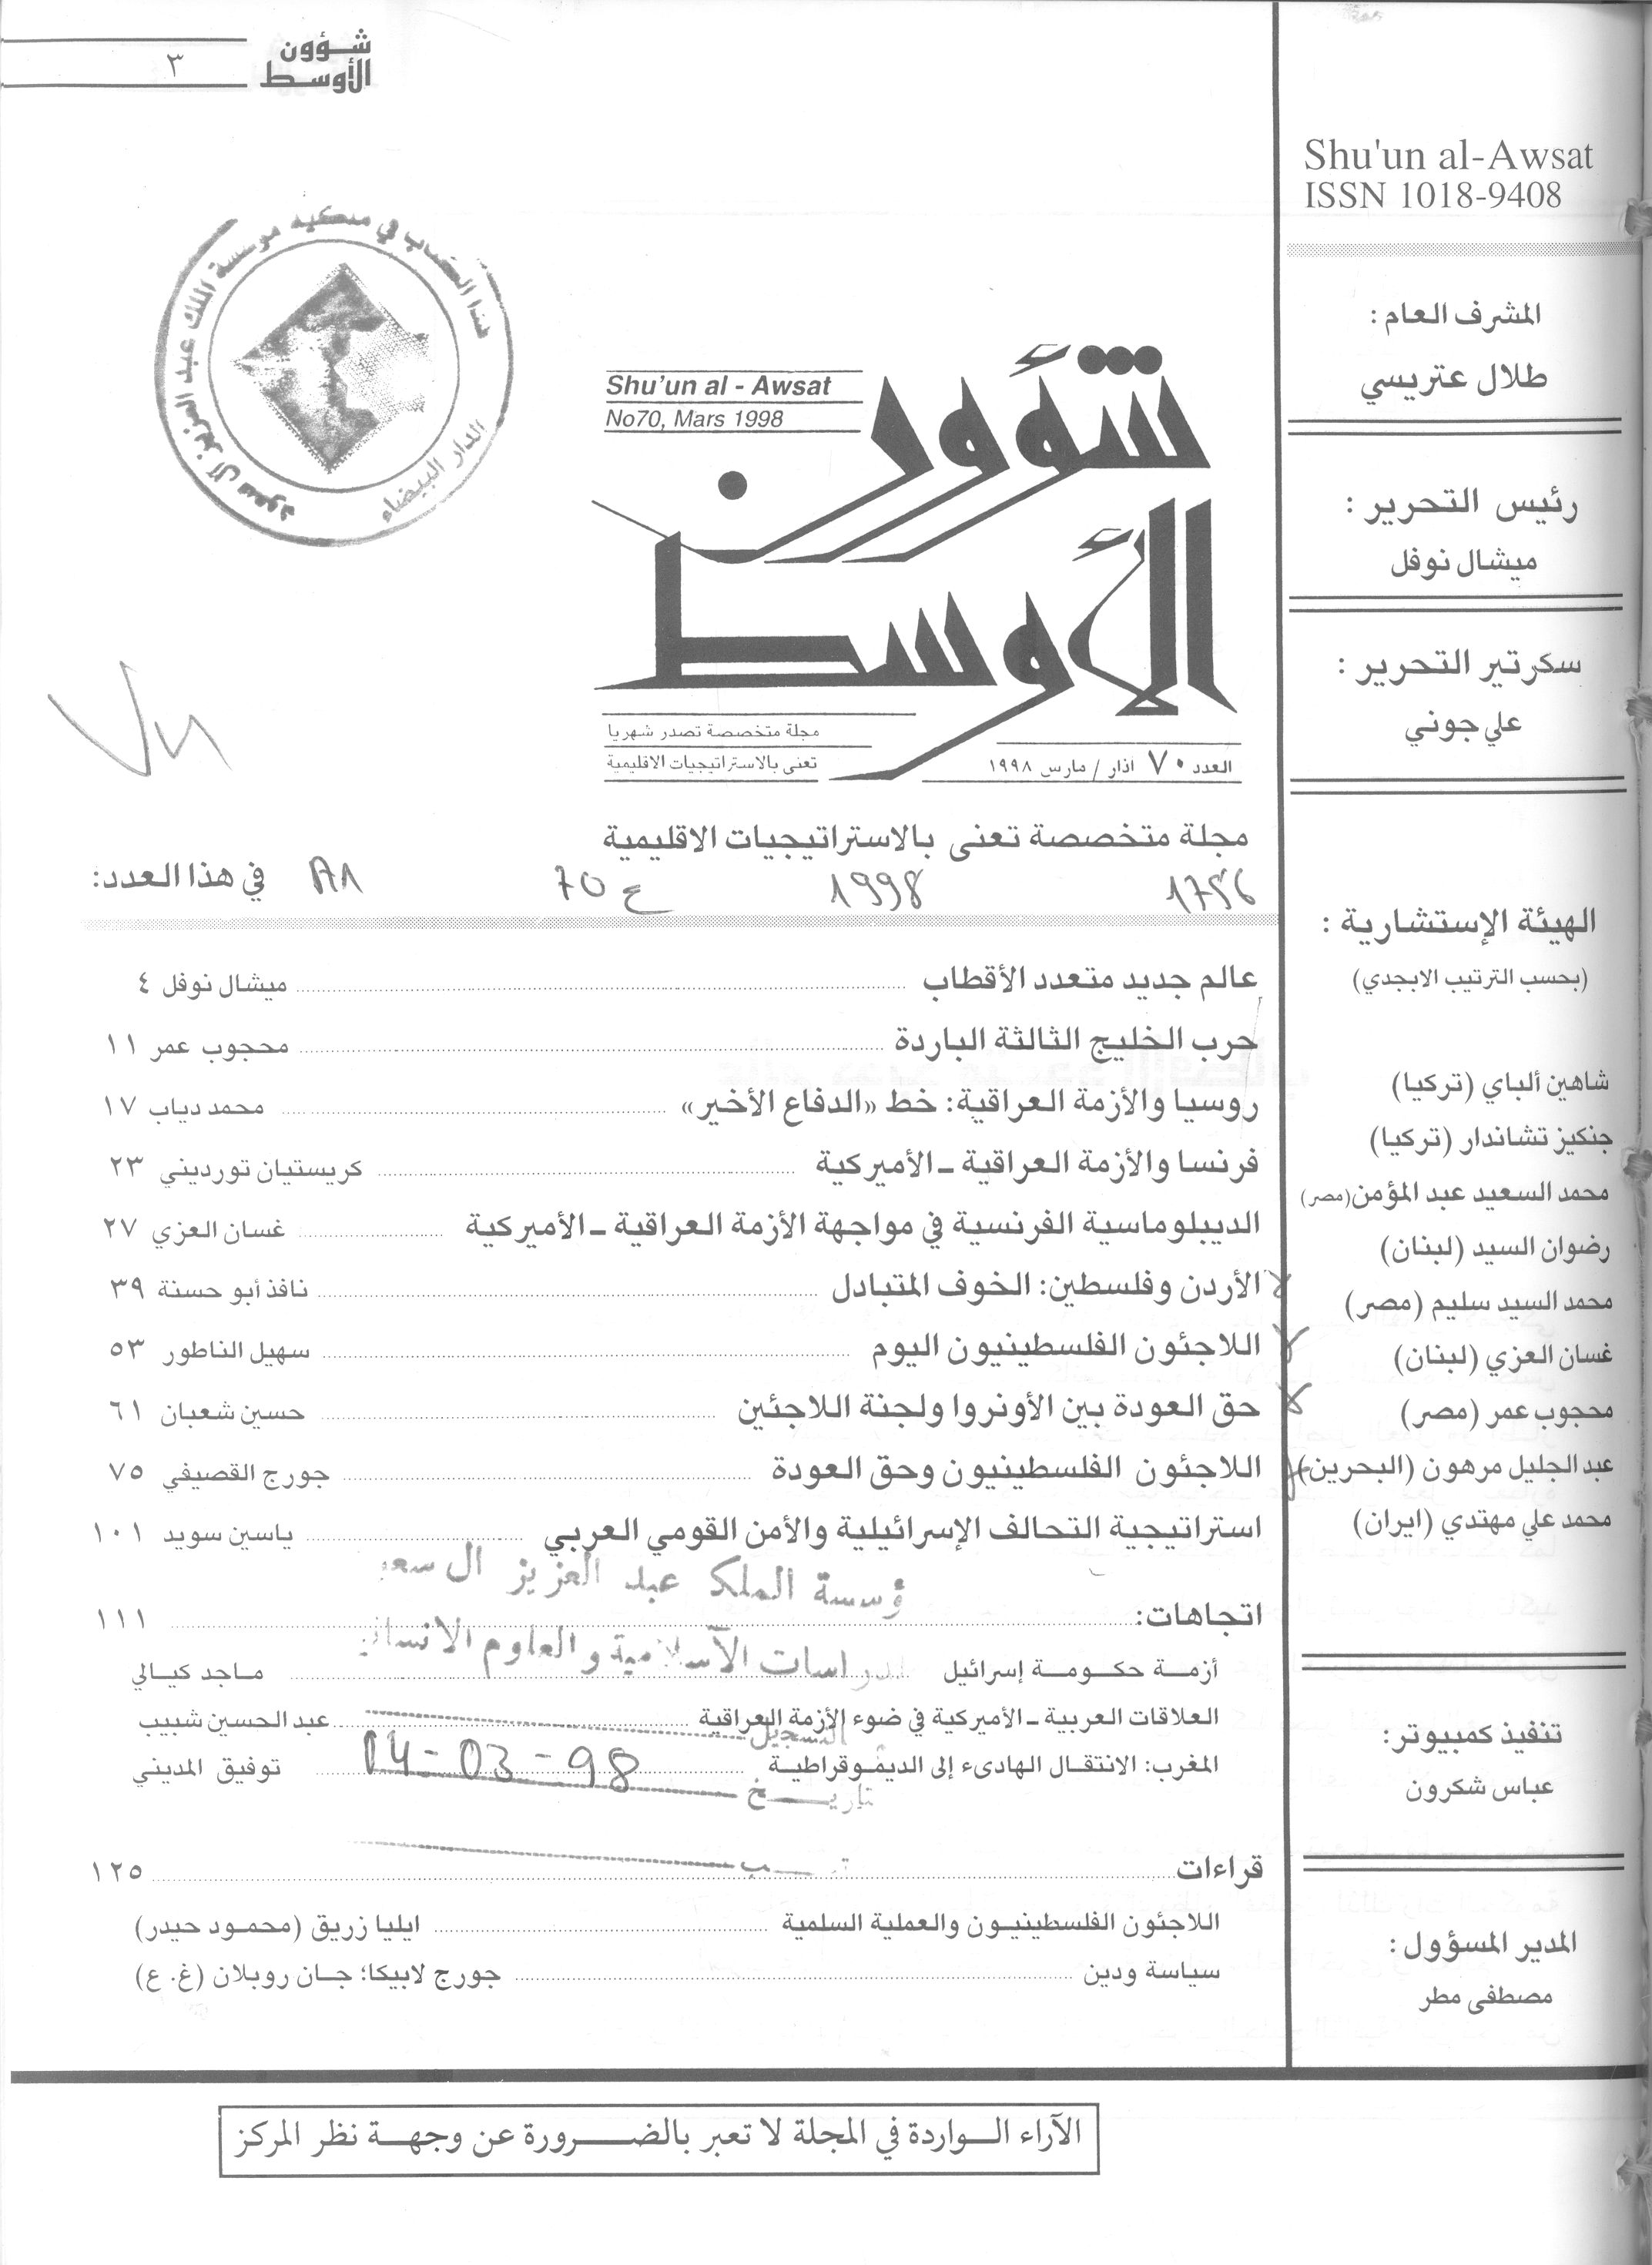 شؤون
الأوسط
٣
Shu'un al-Awsat
ISSN 1018-9408
المشرف العام :
طلال عتريسي
رئيس التحرير :
ميشال نوفل
سكرتير التحرير :
علي جوني
الهيئة الإستشارية :
(بحسب الترتيب الابجدي)
شاهين ألباي (تركيا)
جنكيز تشاندار (تركيا)
محمد السعيد عبد المؤمن (مصر)
رضوان السيد (لبنان)
محمد السيد سليم (مصر)
غسان العزي (لبنان)
محجوب عمر (مصر)
عبد الجليل مرهون (البحرين)
محمد علي مهتدي (ايران)
تنفيذ كمبيوتر:
عباس شكرون
المدير المسؤول :
مصطفى مطر
موسسة الملك عبد العزيز ال سعود
الدار البيضاء
Shu'un al - Awsat
No70, Mars 1998
شؤون
الأوسط
مجلة متخصصة تصدر شهريا
تعنى بالاستراتيجيات الاقليمية
العدد ٧٠ اذار / مارس ١٩٩٨
مجلة متخصصة تعنى بالاستراتيجيات الاقليمية
1756 1998 ع 70
في هذا العدد:
عالم جديد متعدد الأقطاب ........ ميشال نوفل ٤
حرب الخليج الثالثة الباردة ........ محجوب عمر ١١
روسيا والأزمة العراقية: خط «الدفاع الأخير» ........ محمد دياب ١٧
فرنسا والأزمة العراقية ـ الأميركية ........ كريستيان تورديني ٢٣
الديبلوماسية الفرنسية في مواجهة الأزمة العراقية ـ الأميركية ........ غسان العزي ٢٧
الأردن وفلسطين: الخوف المتبادل ........ نافذ أبو حسنة ٣٩
اللاجئون الفلسطينيون اليوم ........ سهيل الناطور ٥٣
حق العودة بين الأونروا ولجنة اللاجئين ........ حسين شعبان ٦١
اللاجئون الفلسطينيون وحق العودة ........ جورج القصيفي ٧٥
استراتيجية التحالف الإسرائيلية والأمن القومي العربي ........ ياسين سويد ١٠١
ؤسسة الملك عبد العزيز ال سعو
اتجاهات: ........ ١١١
دراسات الآسلامية والعلوم الانساني
أزمة حكومة إسرائيل ........ ماجد كيالي
العلاقات العربية ـ الأميركية في ضوء الأزمة العراقية ........ عبد الحسين شبيب
التسجيل
المغرب: الانتقال الهادىء إلى الديموقراطية ........ توفيق المديني
تاريخ 04-03-98
قراءات ........ ١٢٥
اللاجئون الفلسطينيون والعملية السلمية ........ ايليا زريق (محمود حيدر)
سياسة ودين ........ جورج لابيكا؛ جان روبلان (غ. ع)
الآراء الواردة في المجلة لا تعبر بالضرورة عن وجهة نظر المركز